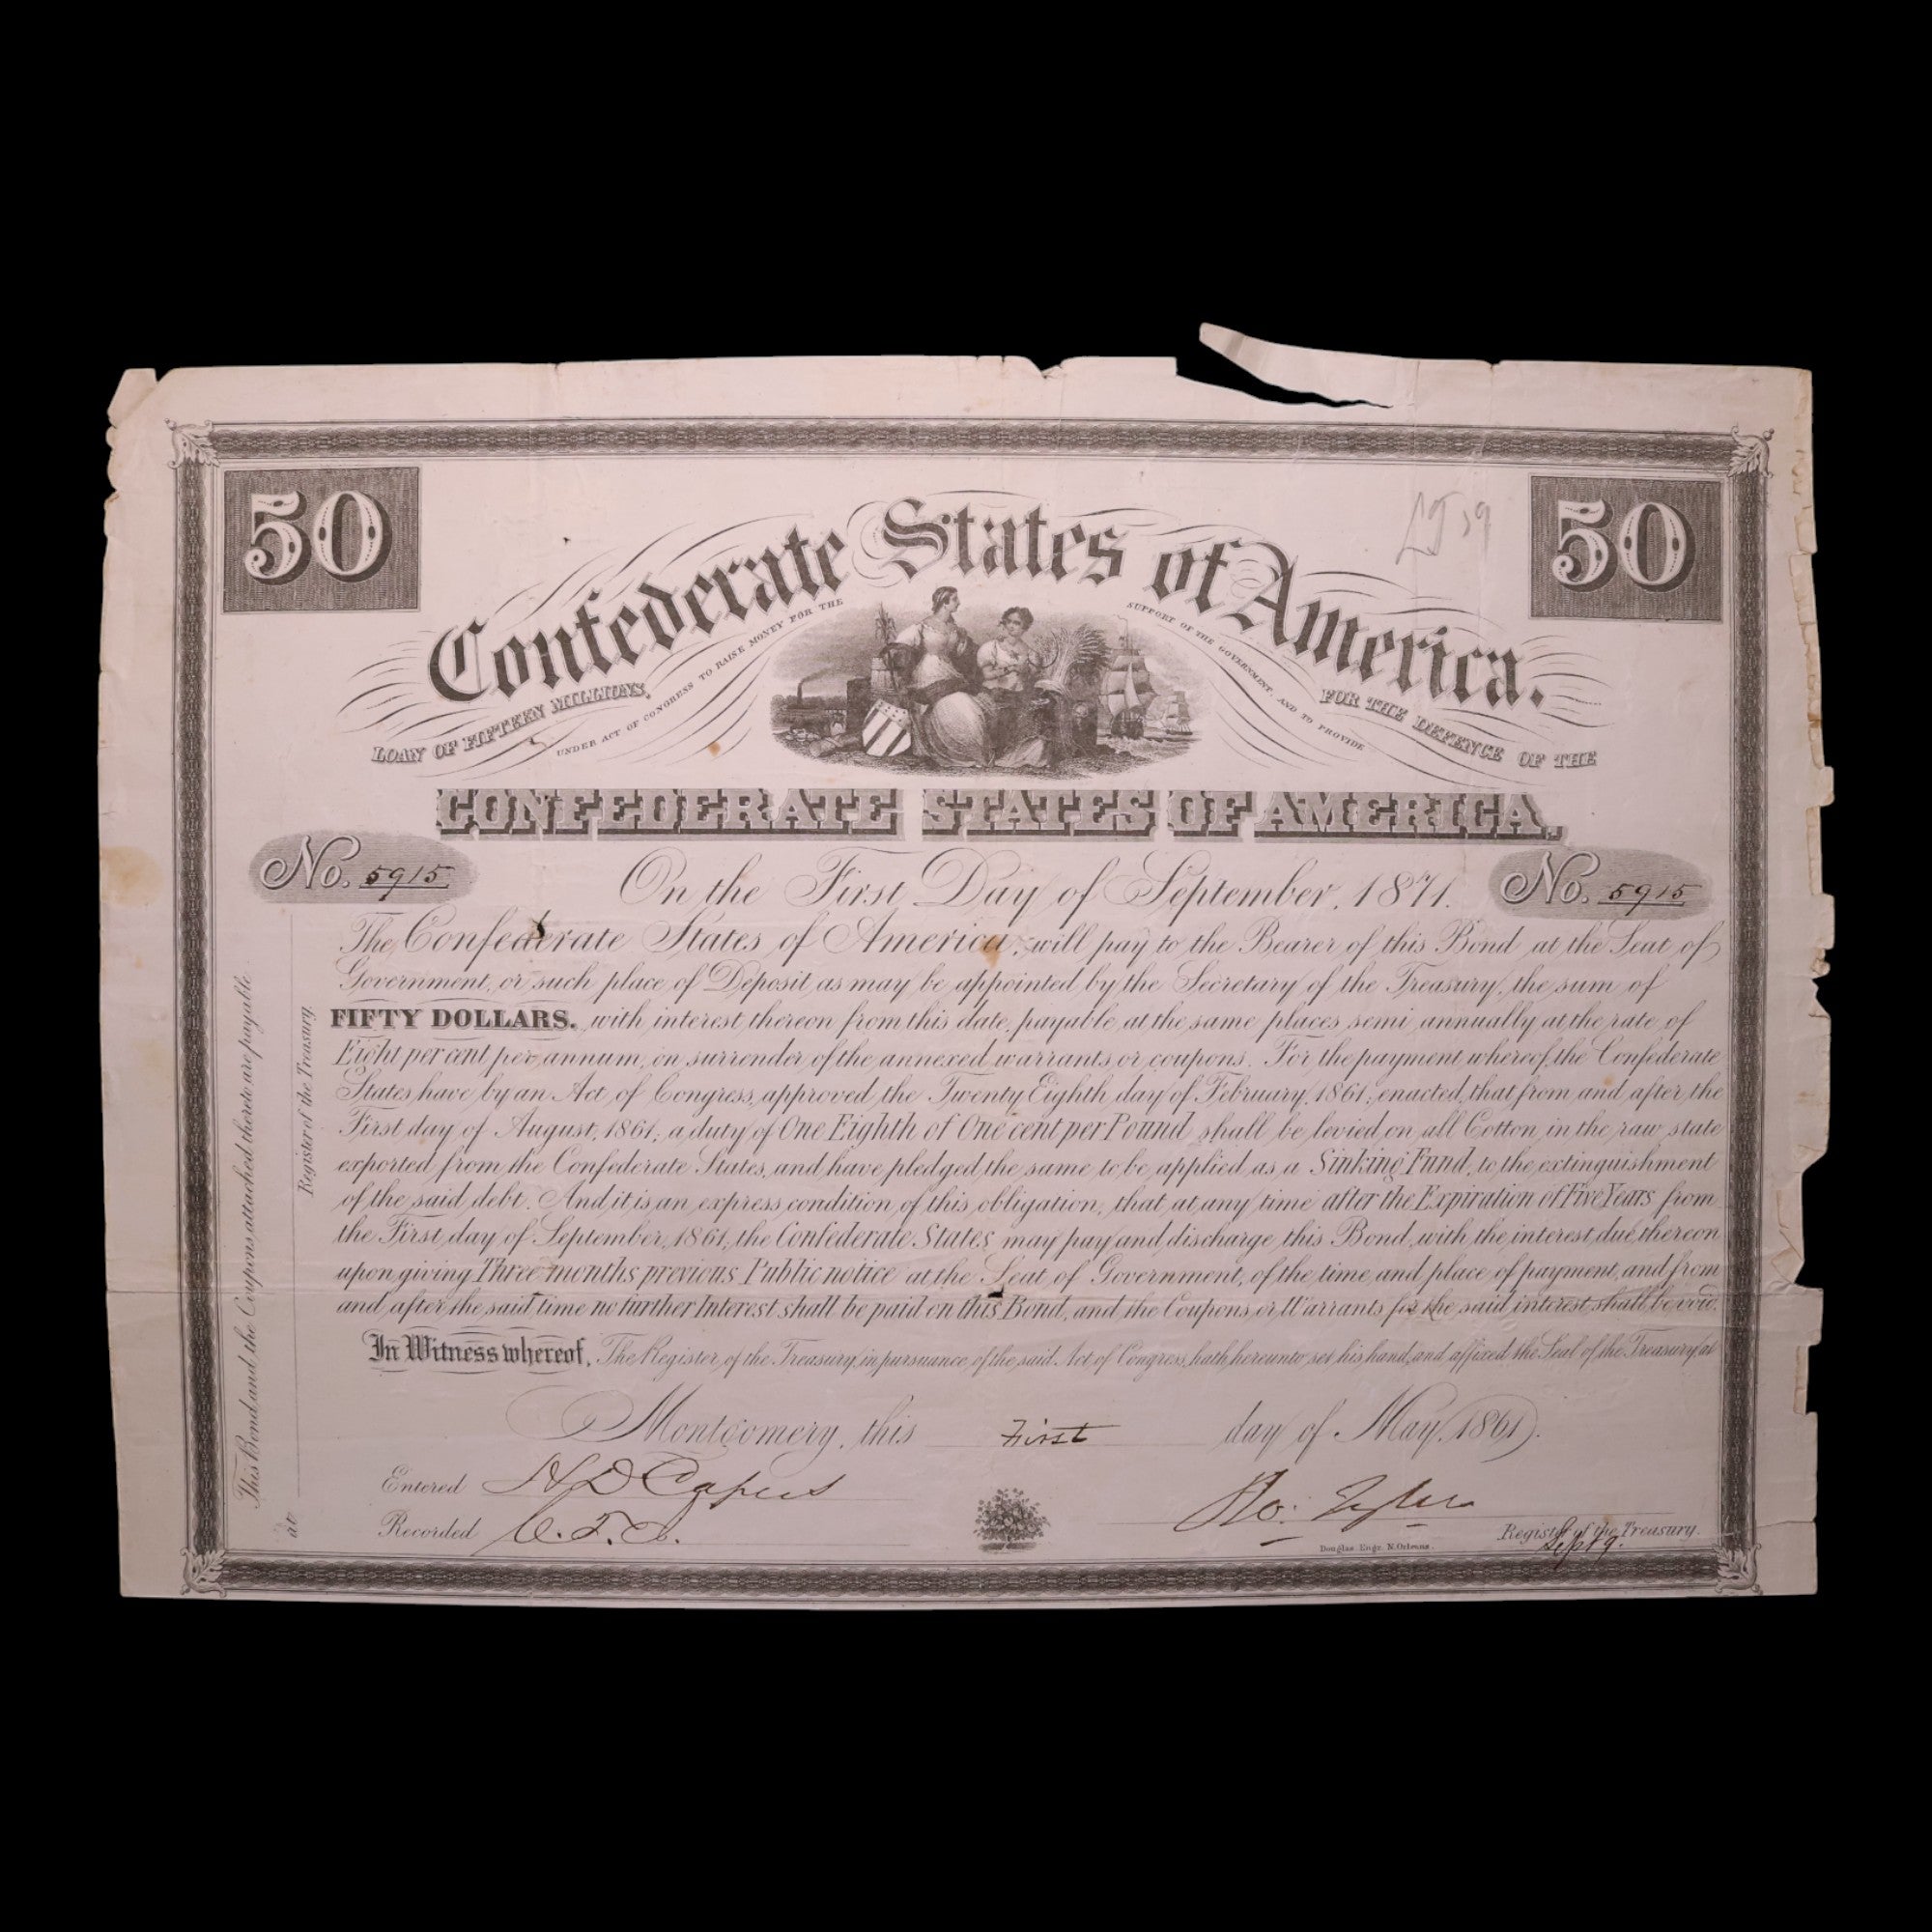 50
50
Confederate States of America.
LOAN OF FIFTEEN MILLIONS,
UNDER ACT OF CONGRESS TO RAISE MONEY FOR THE
SUPPORT OF THE GOVERNMENT, AND TO PROVIDE
FOR THE DEFENCE OF THE
CONFEDERATE STATES OF AMERICA,
No. 5915
On the First Day of September, 1871.
No. 5915
The Confederate States of America, will pay to the Bearer of this Bond at the Seat of
Government, or such place of Deposit as may be appointed by the Secretary of the Treasury, the sum of
FIFTY DOLLARS. with interest thereon from this date, payable at the same places semi annually at the rate of
Eight per cent per annum, on surrender of the annexed warrants or coupons. For the payment whereof, the Confederate
States have by an Act of Congress, approved the Twenty Eighth day of February, 1861; enacted, that from and after the
First day of August, 1861; a duty of One Eighth of One cent per Pound shall be levied on all Cotton in the raw state
exported from the Confederate States, and have pledged the same to be applied as a Sinking Fund, to the extinguishment
of the said debt. And it is an express condition of this obligation, that at any time after the Expiration of Five Years from
the First day of September, 1861, the Confederate States may pay and discharge this Bond, with the interest due thereon
upon giving Three months previous Public notice at the Seat of Government, of the time and place of payment, and from
and after the said time no further Interest shall be paid on this Bond, and the Coupons or Warrants for the said interest shall be void.
In Witness whereof, The Register of the Treasury, in pursuance of the said Act of Congress, hath hereunto set his hand, and affixed the Seal of the Treasury at
Montgomery, this First day of May, 1861.
Entered H D Capers
Recorded C. T. J.
Ro: Tyler
Register of the Treasury.
Sept 9.
Douglas Engr. N. Orleans.
This Bond and the Coupons attached thereto are payable
at
Register of the Treasury.